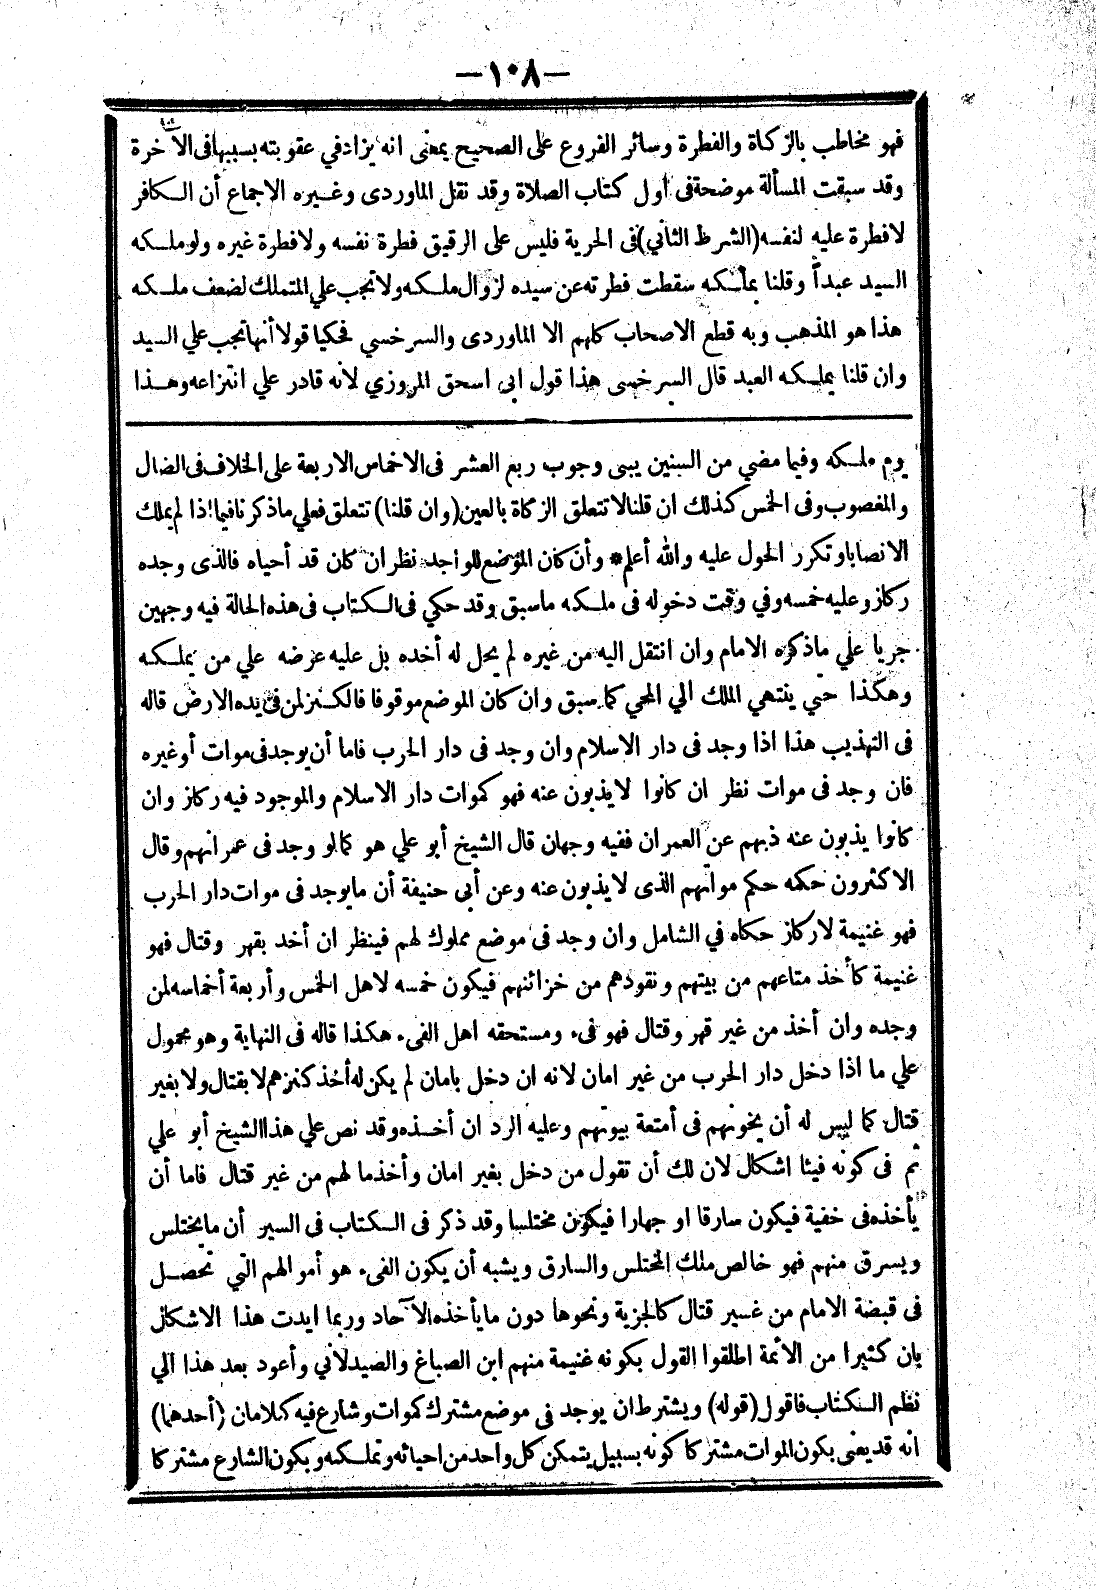 —١٠٨—
فهو مخاطب بالزكاة والفطرة وسائر الفروع على الصحيح بمعنى انه يزاد في عقوبته بسببها فى الآخرة
وقد سبقت المسألة موضحة فى اول كتاب الصلاة وقد نقل الماوردى وغيره الاجماع أن الكافر
لا فطرة عليه لنفسه (الشرط الثاني) فى الحرية فليس على الرقيق فطرة نفسه ولا فطرة غيره ولو ملكه
السيد عبداً وقلنا يملكه سقطت فطرته عن سيده لزوال ملكه ولا تجب علي المتملك لضعف ملكه
هذا هو المذهب وبه قطع الاصحاب كلهم الا الماوردى والسرخسي فحكيا قولا أنها تجب علي السيد
وان قلنا يملكه العبد قال السرخسى هذا قول ابى اسحق المروزي لأنه قادر علي انتزاعه وهذا
يوم ملكه وفيما مضي من السنين يبى وجوب ربع العشر فى الاخماس الاربعة على الخلاف فى الضال
والمغصوب وفى الخمس كذلك ان قلنا لا تتعلق الزكاة بالعين (وان قلنا) تتعلق فعلي ماذكرنا فيما اذا لم يملك
الا نصابا وتكرر الحول عليه والله أعلم * وأن كان الموضع للواجد نظر ان كان قد أحياه فالذى وجده
ركاز وعليه خمسه وفي وقت دخوله فى ملكه ما سبق وقد حكي فى الكتاب فى هذه الحالة فيه وجهين
جريا علي ماذكره الامام وان انتقل اليه من غيره لم يحل له أخده بل عليه عرضه علي من يملكه
وهكذا حتي ينتهي الملك الي المحي كما سبق وان كان الموضع موقوفا فالكنز لمن فى يده الارض قاله
فى التهذيب هذا اذا وجد فى دار الاسلام وان وجد فى دار الحرب فاما أن يوجد فى موات أو غيره
فان وجد فى موات نظر ان كانوا لا يذبون عنه فهو كموات دار الاسلام والموجود فيه ركاز وان
كانوا يذبون عنه ذبهم عن العمران ففيه وجهان قال الشيخ أبو علي هو كما لو وجد فى عمرانهم وقال
الاكثرون حكمه حكم مواتهم الذى لا يذبون عنه وعن أبى حنيفة أن ما يوجد فى موات دار الحرب
فهو غنيمة لا ركاز حكاه في الشامل وان وجد فى موضع مملوك لهم فينظر ان أخد بقهر وقتال فهو
غنيمة كأخذ متاعهم من بيتهم ونقودهم من خزائنهم فيكون خمسه لاهل الخمس وأربعة أخماسه لمن
وجده وان أخذ من غير قهر وقتال فهو فىء ومستحقه اهل الفىء هكذا قاله فى النهاية وهو محمول
علي ما اذا دخل دار الحرب من غير امان لانه ان دخل بامان لم يكن له أخذ كنزهم لا بقتال ولا بغير
قتال كما ليس له أن يخونهم فى أمتعة بيوتهم وعليه الرد ان أخذه وقد نص علي هذا الشيخ أبو علي
ثم فى كونه فيئا اشكال لان لك أن تقول من دخل بغير امان وأخذ ما لهم من غير قتال فاما أن
يأخذه فى خفية فيكون سارقا او جهارا فيكون مختلسا وقد ذكر فى الكتاب فى السير أن ما يختلس
ويسرق منهم فهو خالص ملك المختلس والسارق ويشبه أن يكون الفىء هو أموالهم التي تحصل
فى قبضة الامام من غير قتال كالجزية ونحوها دون ما يأخذه الآحاد وربما ايدت هذا الاشكال
بان كثيرا من الأئمة اطلقوا القول بكونه غنيمة منهم ابن الصباغ والصيدلاني وأعود بعد هذا الي
نظم الكتاب فاقول (قوله) ويشترط ان يوجد فى موضع مشترك كموات وشارع فيه كلامان (أحدهما)
انه قد يعنى بكون الموات مشتركا كونه بسبيل يتمكن كل واحد من احيائه وتملكه وبكون الشارع مشتركا